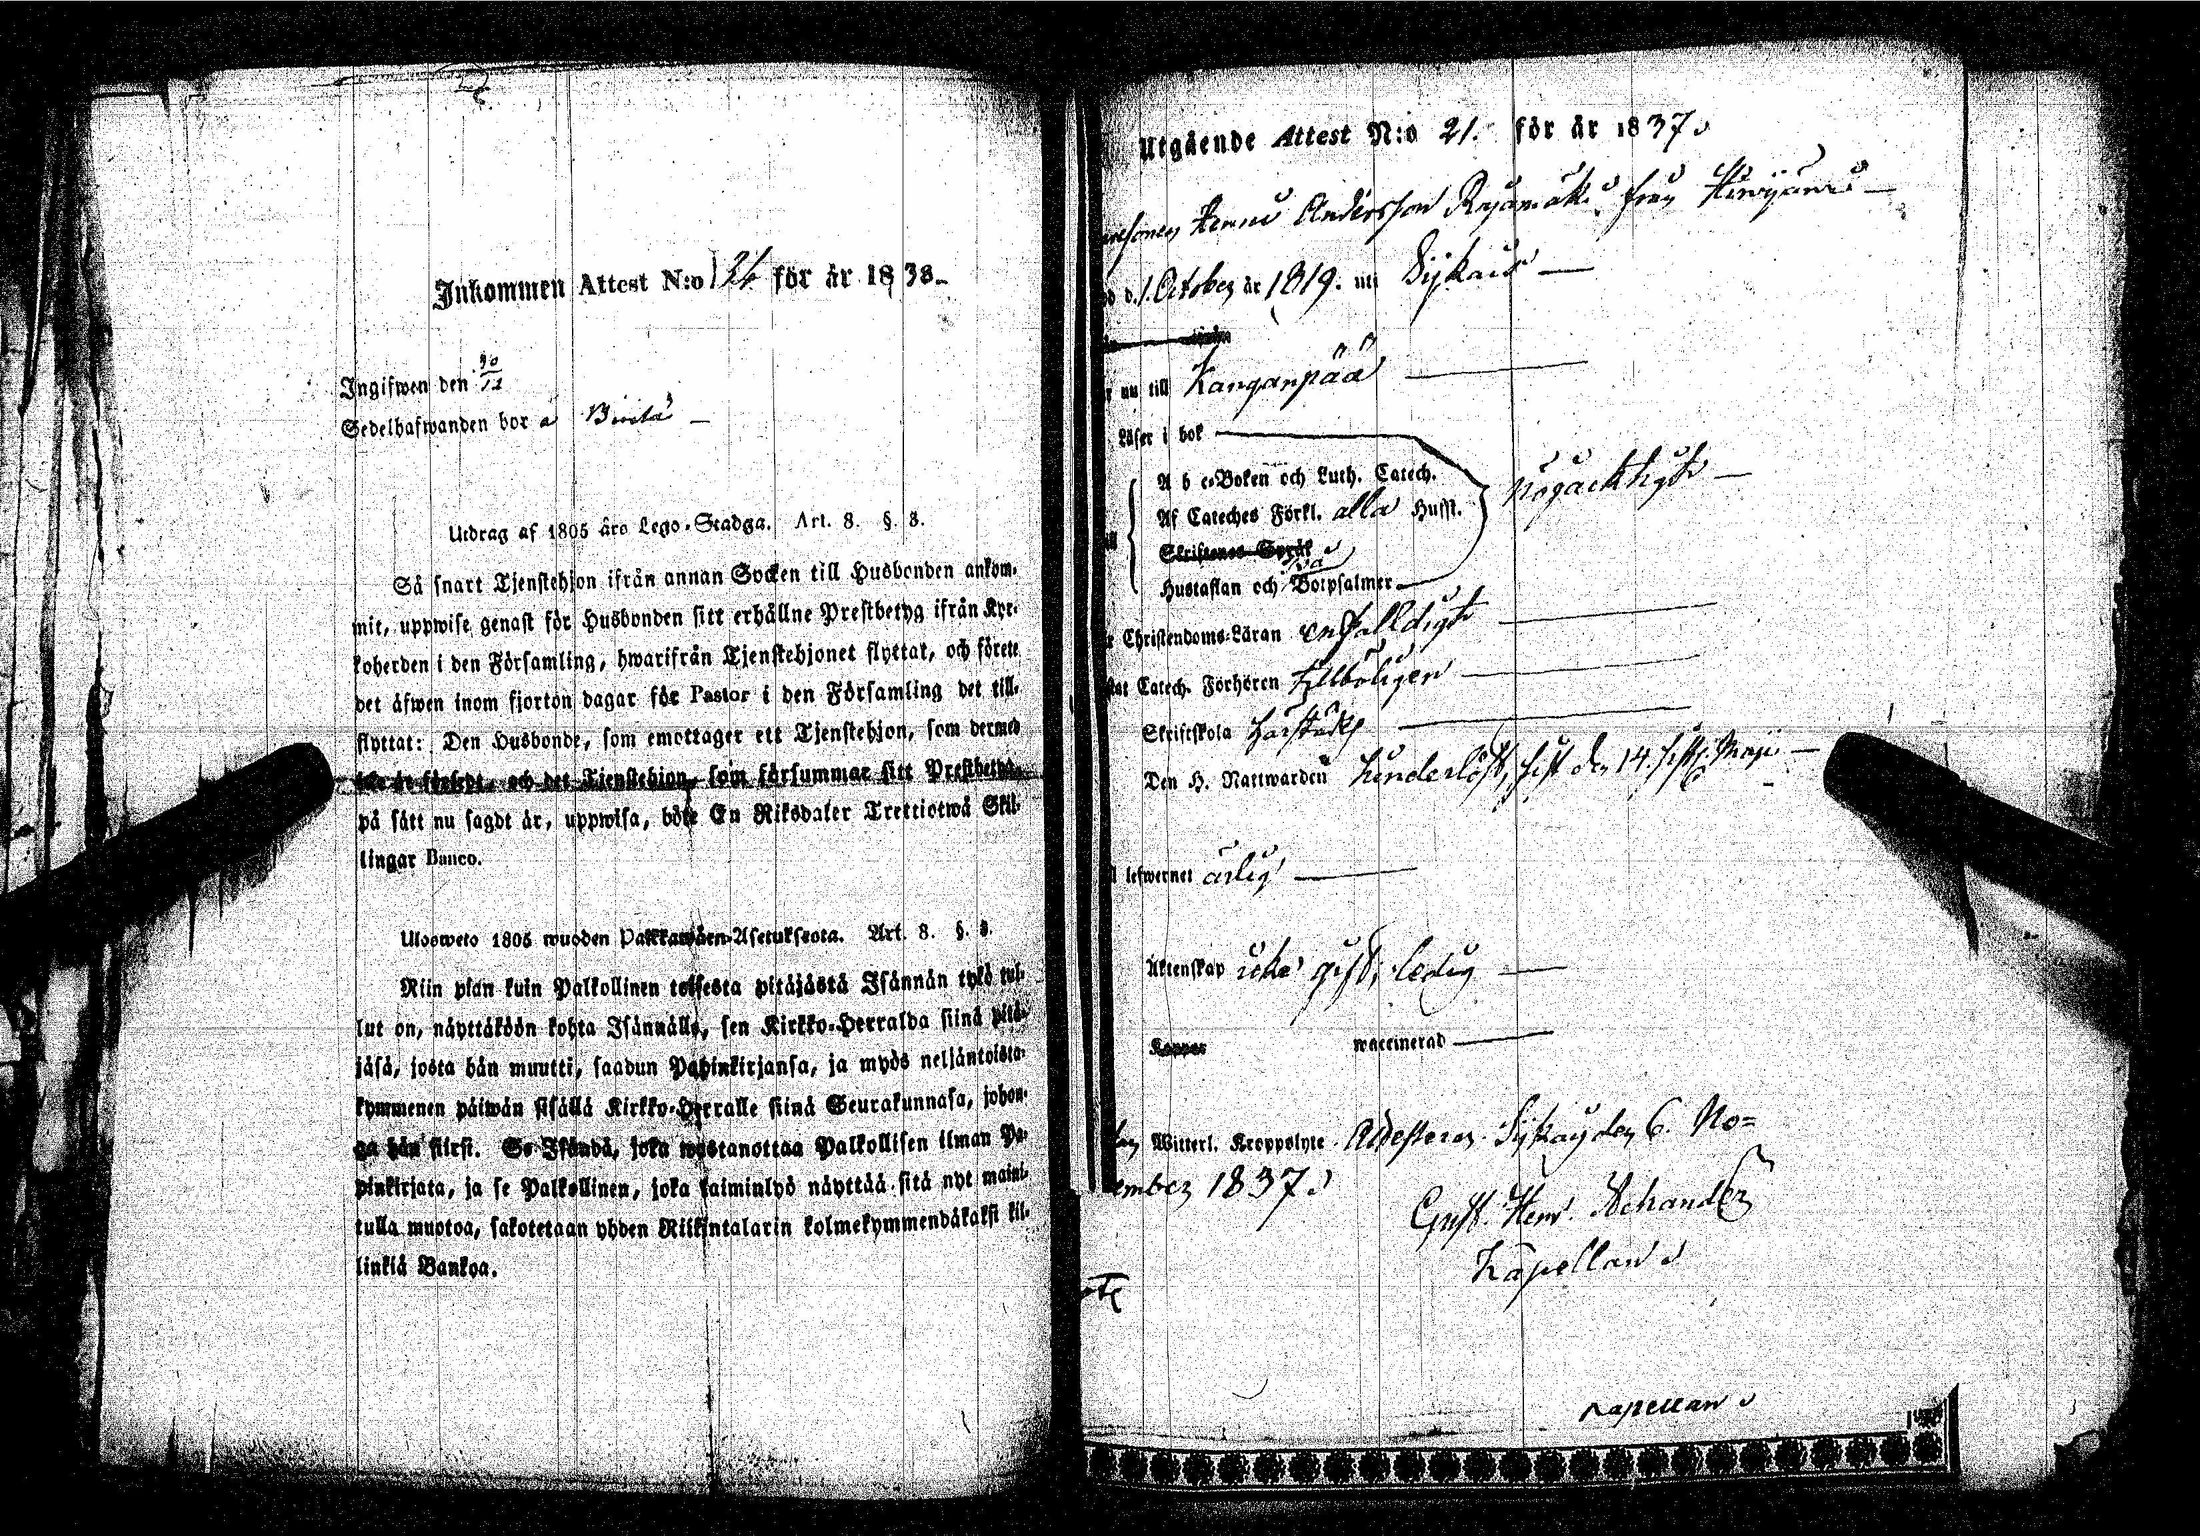 Inkommen Attest N:o 126 för år 1838.
Ingifwen den 30/12
Sedelhafwanden bor å
Utdrag af 1805 års Lego-Stadga. Art. 8. §. 3.
Så snart Tjenstehjon ifrån annan Socken till Husbonden ankom-
mit, uppwise genast för Husbonden sitt erhållne Prestbetyg ifrån Kyr-
koherden i den Församling, hwarifrån Tjenstehjonet flyttat, och förete
det äfwen inom fjorton dagar för Pastor i den Församling det till-
flyttat: Den Husbonde, som emottager ett Tjenstehjon, som dermed
och det Tjenstehjon, som försummar sitt Prestbetyg,
på sätt nu sagdt är, uppwisa, böte En Riksdaler Trettiotwå Skil-
lingar Banco.
Ulosweto 1805 wuoden Palkkawäen-Asetuksesta. Art. 8. §. 3.
Niin pian kuin Palkollinen toisesta pitäjästä Isännän tykö tul-
lut on, näyttäköön kohta Isännälle, sen Kirkko-Herralda siinä pitä-
jäsä, josta hän muutti, saadun Papinkirjansa, ja myös neljäntoista-
kymmenen päiwän sisällä Kirkko-Herralle siinä Seurakunnasa, johon-
ga hän siirsi. Se Isändä, joka wastanottaa Palkollisen ilman Pa-
pinkirjata, ja se Palkollinen, joka laiminlyö näyttää sitä nyt maini-
tulla muotoa, sakotetaan yhden Riikintalarin kolmekymmendäkaksi kil-
linkiä Bankoa.
Utgående Attest N:o 21. för år 1837.
Andersson från
d. 1. October år 1819. uti Sijkais
nu till Kanganpää
Läser i bok
A b c-Boken och Luth. Catech.
Af Cateches Förkl. alla Husst.
nögacktigt
Skriftenes Språk
Hustaflan och Botpsalmer
Christendoms-Läran enfalldigt
Catech. Förhören
Skriftskola
Den H. Nattwarden hinderlöst, sist den 14. sistl. Maji
lefwernet ärlig
Äktenskap icke gift, ledig
Koppor waccinerad
Witterl. Kroppslyte. Attesterar. Sijkais den 6. No=
vember 1837.
Gust. Henr. Achander
Kapellan
Kapellan